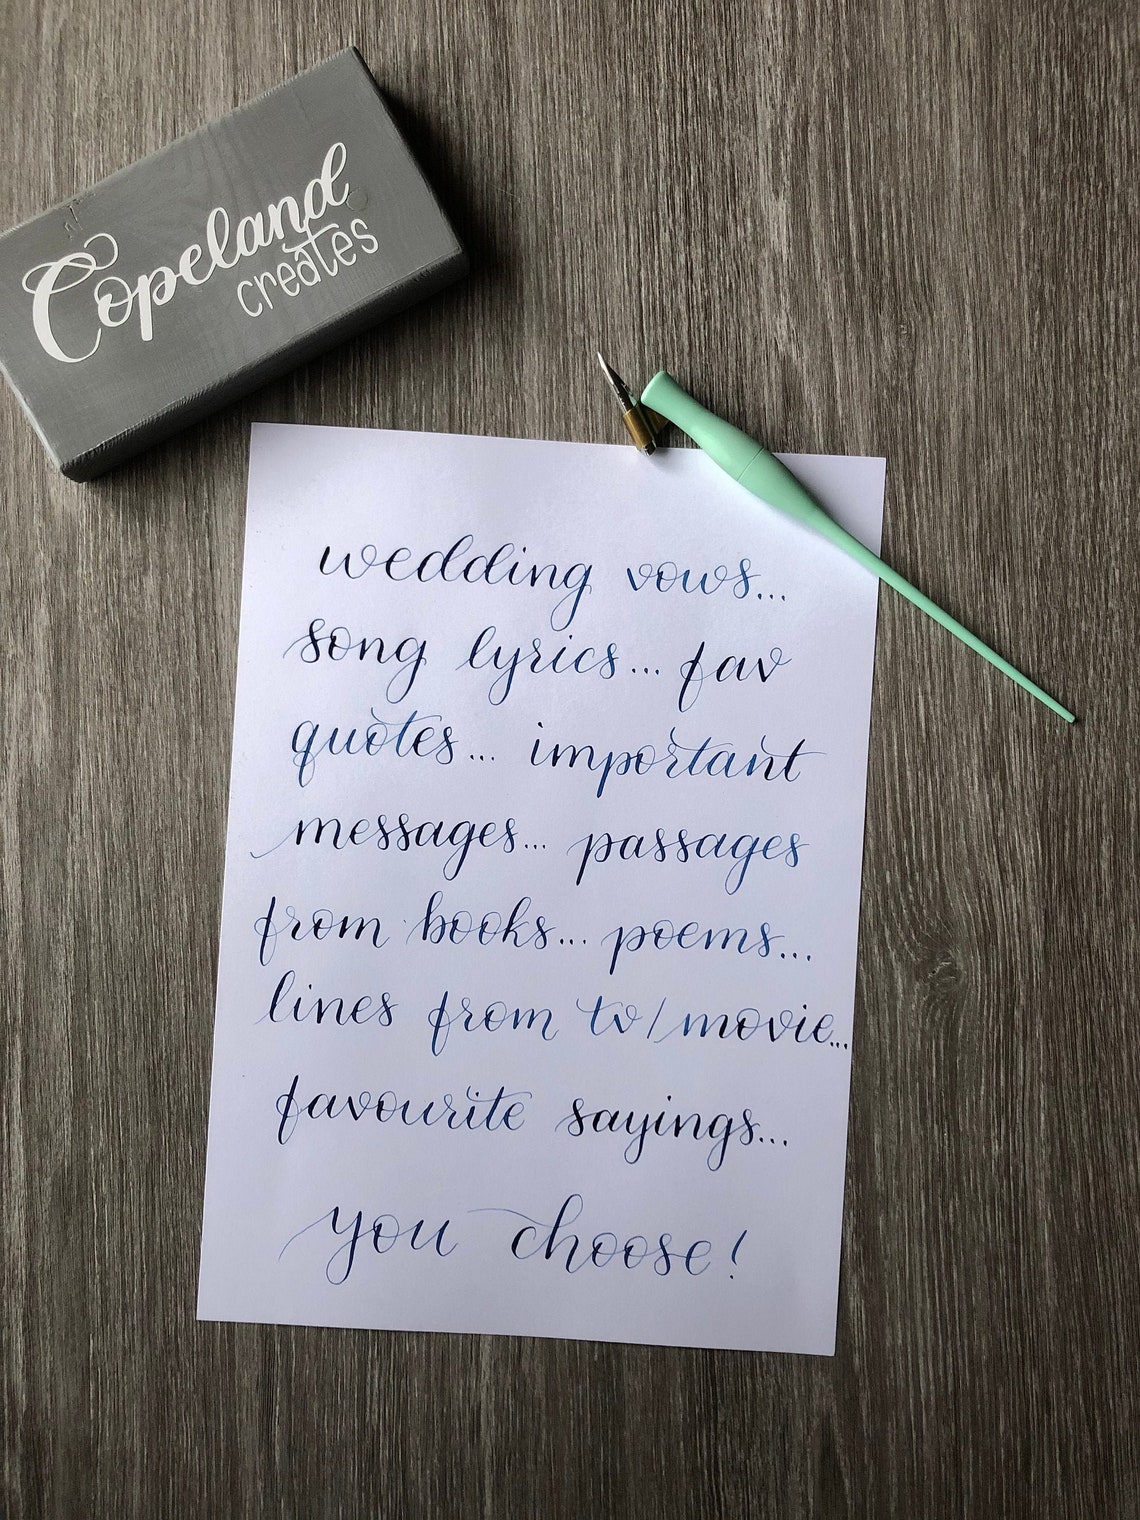 Copeland
creates
wedding vows...
song lyrics... fav
quotes... important
messages... passages
from books... poems...
lines from tv/movie...
favourite sayings...
you choose!